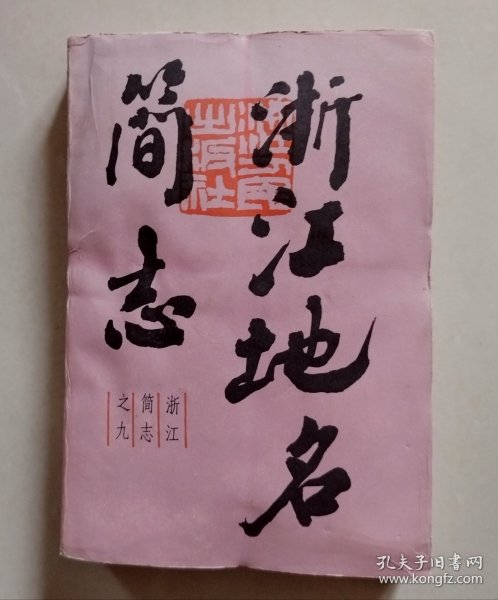 浙江地名
简志
浙江人民
出版社
浙江
简志
之九
孔夫子旧书网
www.kongfz.com